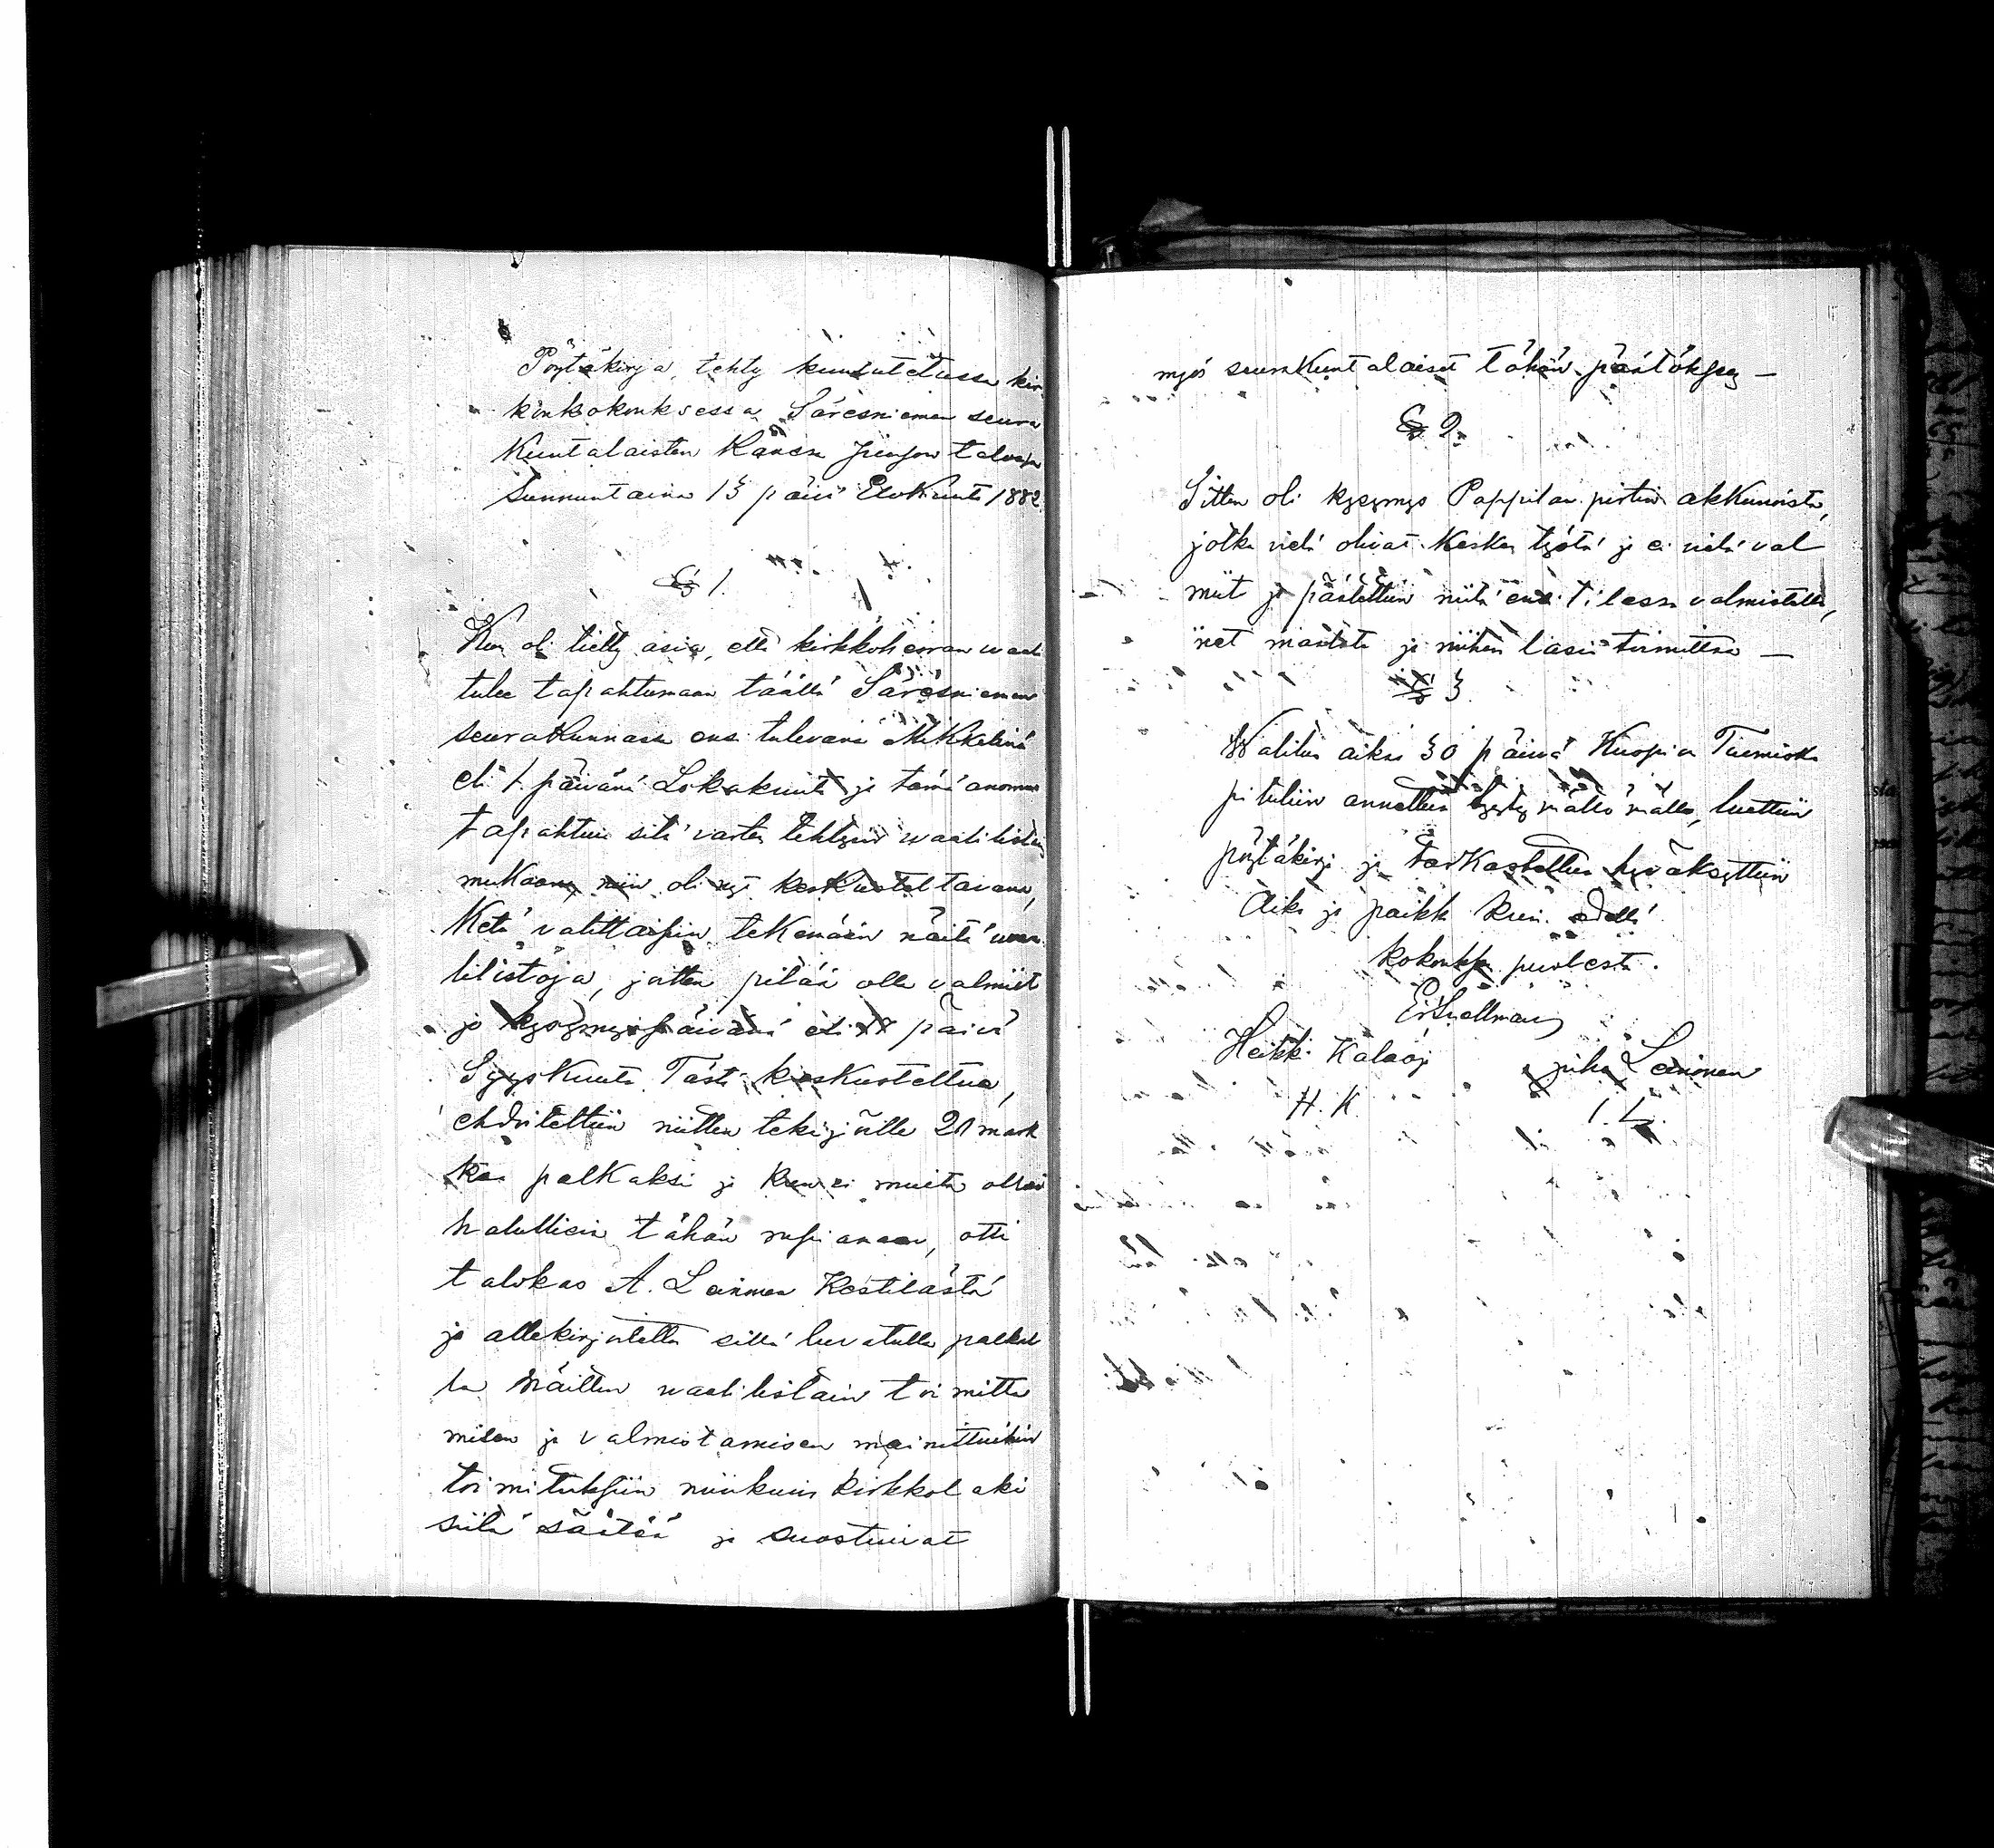 Pöytäkirja, tehty kuulutetussa kir-
konkokouksessa Säresniemen seura
kuntalaisten kansa talossa
Sunnuntaina 13 päiv Elokuuta 1882.
§ 1.
Kun oli tietty asia, että kirkkoherran waali
tulee tapahtumaan täällä Säresniemen
seurakunnassa ensi tulevana Mikkelinä
eli 1 päivänä Lokakuuta ja tämä
tapahtuu sitä varten tehtyin waalilistain
mukaan, niin oli nyt keskusteltavana,
Ketä valittaisiin tekemään näitä waa
lilistoja, joitten pitää olla valmiit
jo kysymyspäivänä eli 18 päivä
Syyskuuta. Tästä keskusteltua,
ehdoteltiin niitten tekijöille 20 mark
kaa palkaksi ja kun ei muita ollut
halullisia tähän rupiamaan, otti
talokas A. Leinonen Kestilästä
ja allekirjoitettu sillä luvatulla palkal
la näitten waalilistain toimitta
misen ja valmistamisen mainittuihin
toimituksiin niinkuin kirkkolaki
siitä säätää ja suostuivat
myös seurakuntalaiset tähän päätökseen —
§ 2.
Sitten oli kysymys Pappilan pirtin akkunoista,
jotka vielä olivat kesken työtä ja ei vielä val
miit ja päätettiin niitä ensi tilassa valmistella,
net maalata ja niihin lasii toimittaa —
§ 3
Walitus aika 30 päivä Kuopion Tuomio
pituliin annettiin tyytymättömälle, luettiin
pöytäkirja ja tarkastettua hyväksyttiin
Aika ja paikka kuin edellä.
kokouksen puolesta.
E Snellman
Heikki Kalaoja juho Leinonen
H. K. I. L.